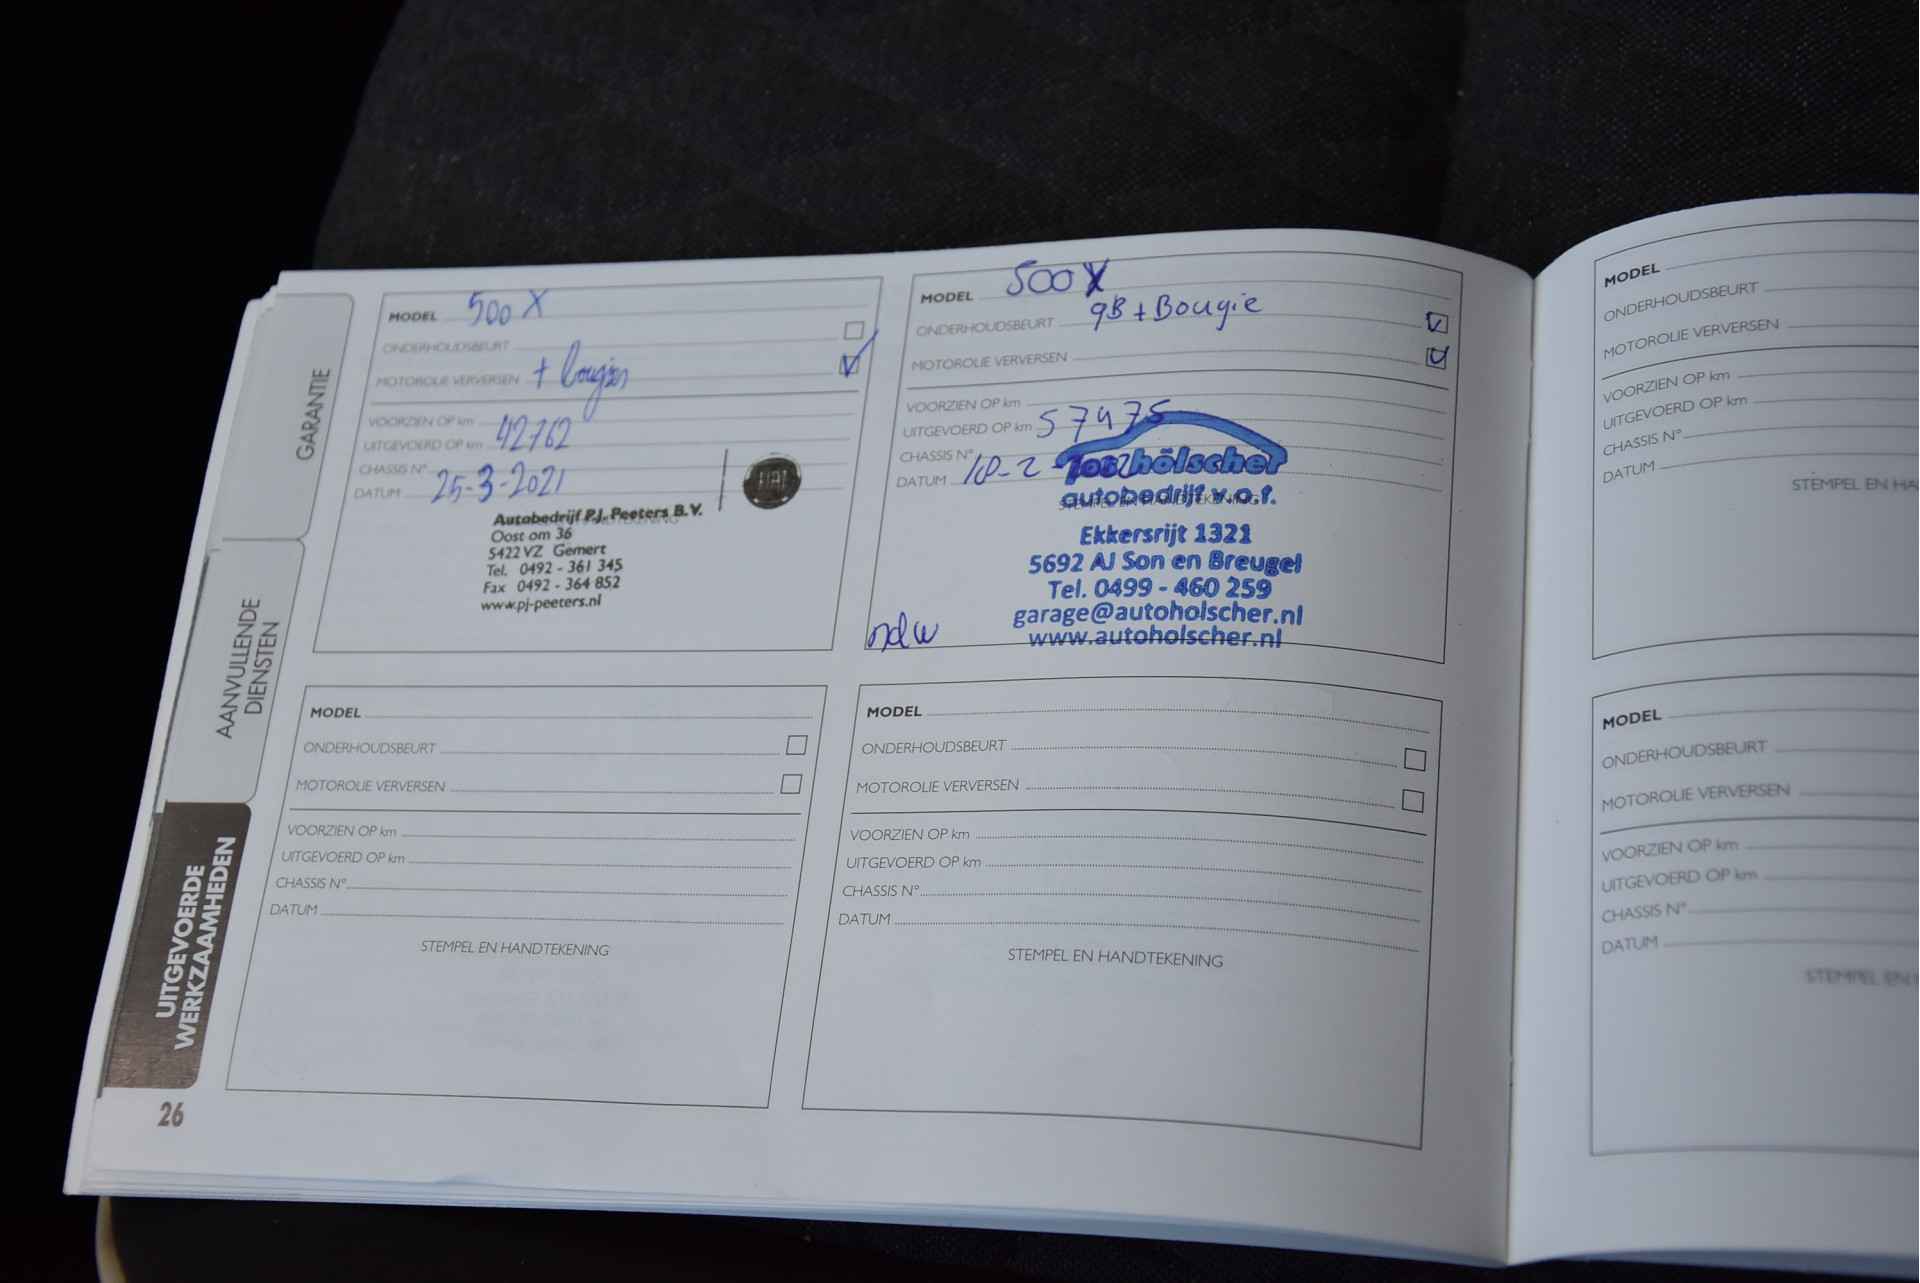 GARANTIE
AANVULLENDE
DIENSTEN
UITGEVOERDE
WERKZAAMHEDEN
26
MODEL 500 X
ONDERHOUDSBEURT
MOTOROLIE VERVERSEN +
VOORZIEN OP km
UITGEVOERD OP km 42762
CHASSIS N°
DATUM 25-3-2021
FIAT
Autobedrijf P.J. Peeters B.V.
Oost om 36
5422 VZ Gemert
Tel. 0492 - 361 345
Fax 0492 - 364 852
www.pj-peeters.nl
MODEL 500 X
ONDERHOUDSBEURT gB + Bougie
MOTOROLIE VERVERSEN
VOORZIEN OP km
UITGEVOERD OP km 57475
CHASSIS N°
DATUM 10-2-
hölscher
autobedrijf v.o.f.
STEMPEL EN HANDTEKENING
Ekkersrijt 1321
5692 AJ Son en Breugel
Tel. 0499 - 460 259
garage@autoholscher.nl
www.autoholscher.nl
MODEL
ONDERHOUDSBEURT
MOTOROLIE VERVERSEN
VOORZIEN OP km
UITGEVOERD OP km
CHASSIS N°
DATUM
STEMPEL EN HANDTEKENING
MODEL
ONDERHOUDSBEURT
MOTOROLIE VERVERSEN
VOORZIEN OP km
UITGEVOERD OP km
CHASSIS N°
DATUM
STEMPEL EN HANDTEKENING
MODEL
ONDERHOUDSBEURT
MOTOROLIE VERVERSEN
VOORZIEN OP km
UITGEVOERD OP km
CHASSIS N°
DATUM
STEMPEL EN HA
MODEL
ONDERHOUDSBEURT
MOTOROLIE VERVERSEN
VOORZIEN OP km
UITGEVOERD OP km
CHASSIS N°
DATUM
STEMPEL EN